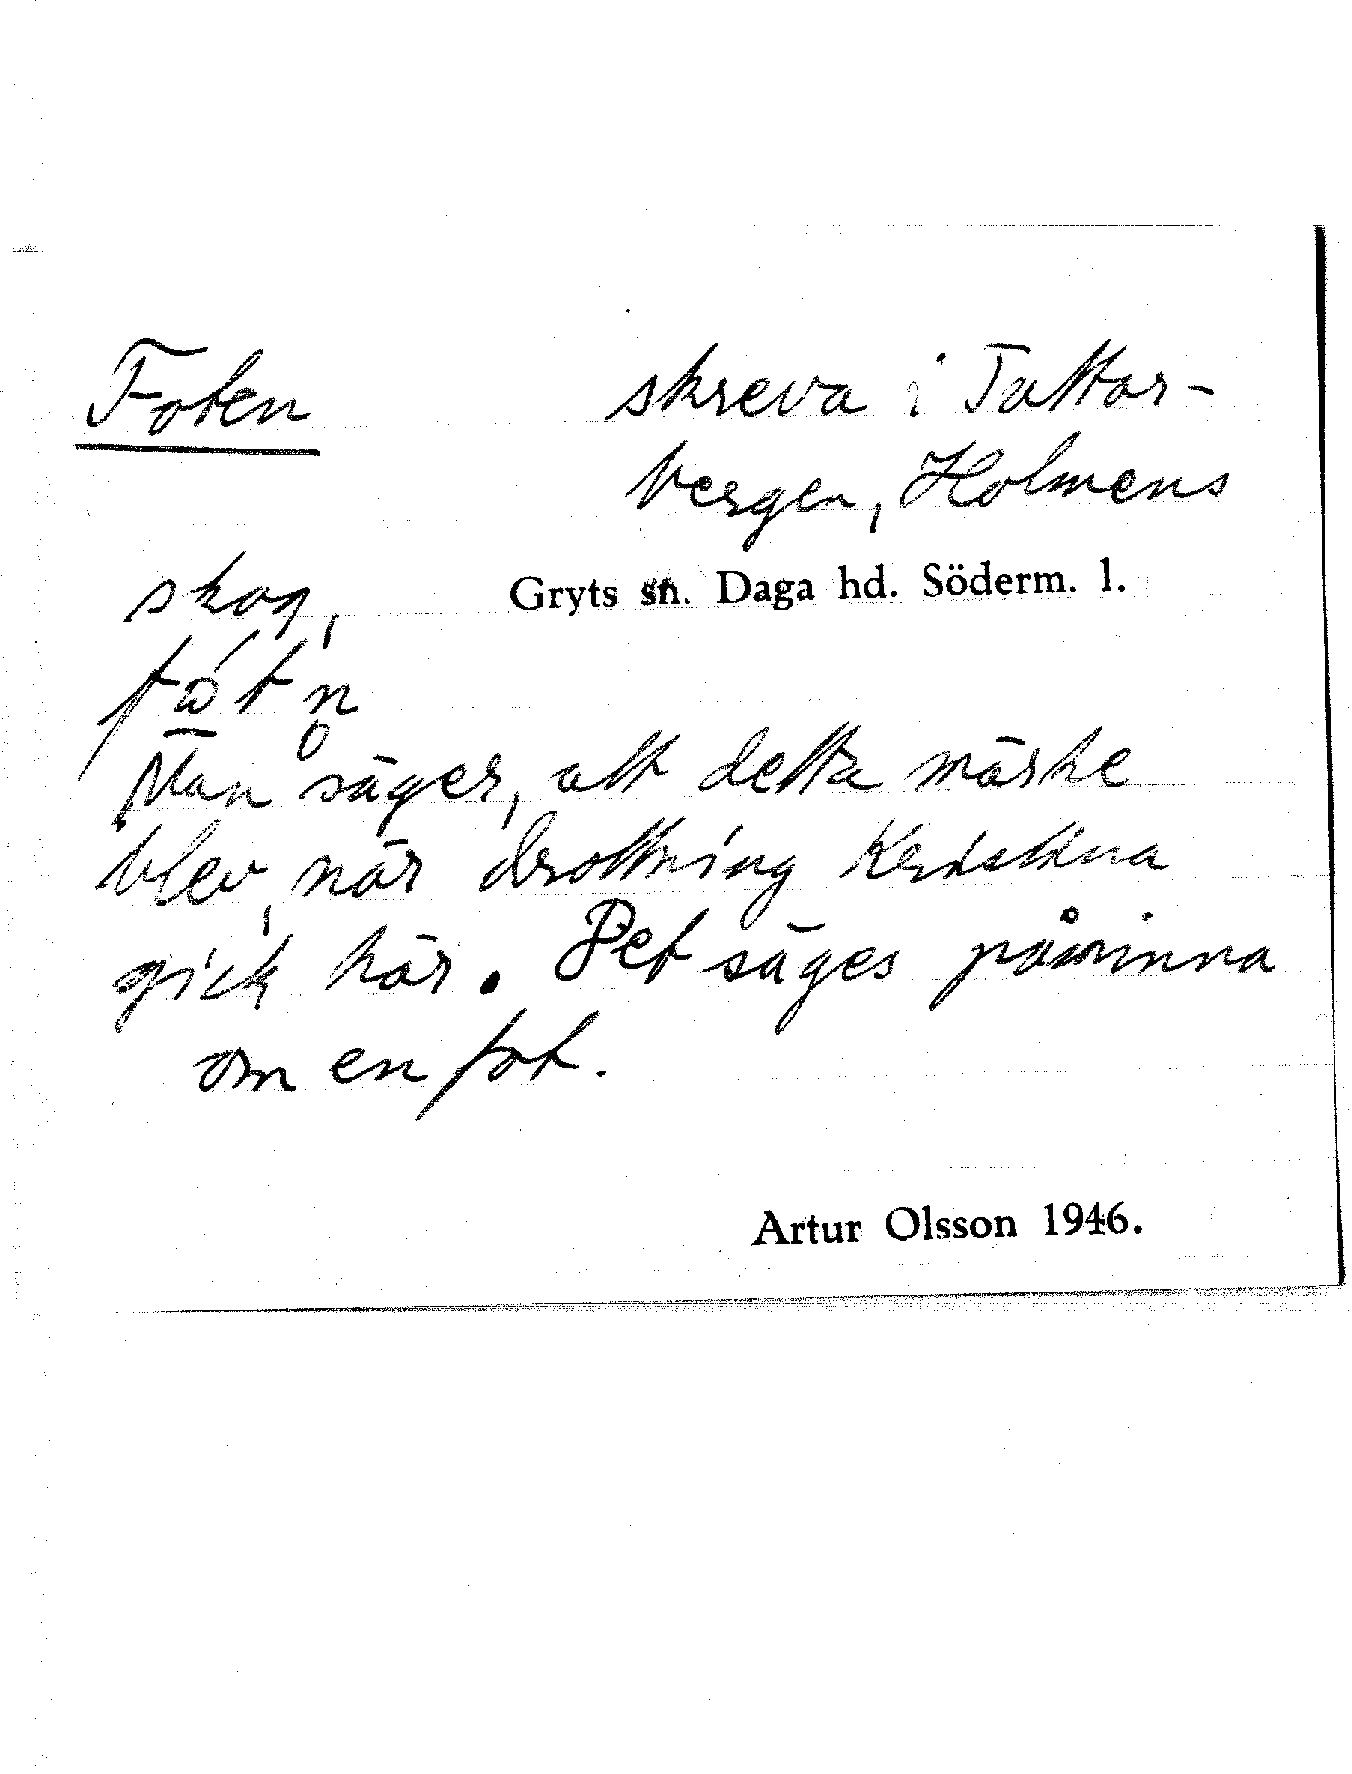 Foten
skreva i Tattar-
bergen, Holmens
skog,
Gryts sn. Daga hd. Söderm. l.
Man säger, att detta märke
blev, när drottning Kristina
gick här. Det säges påminna
om en fot.
Artur Olsson 1946.